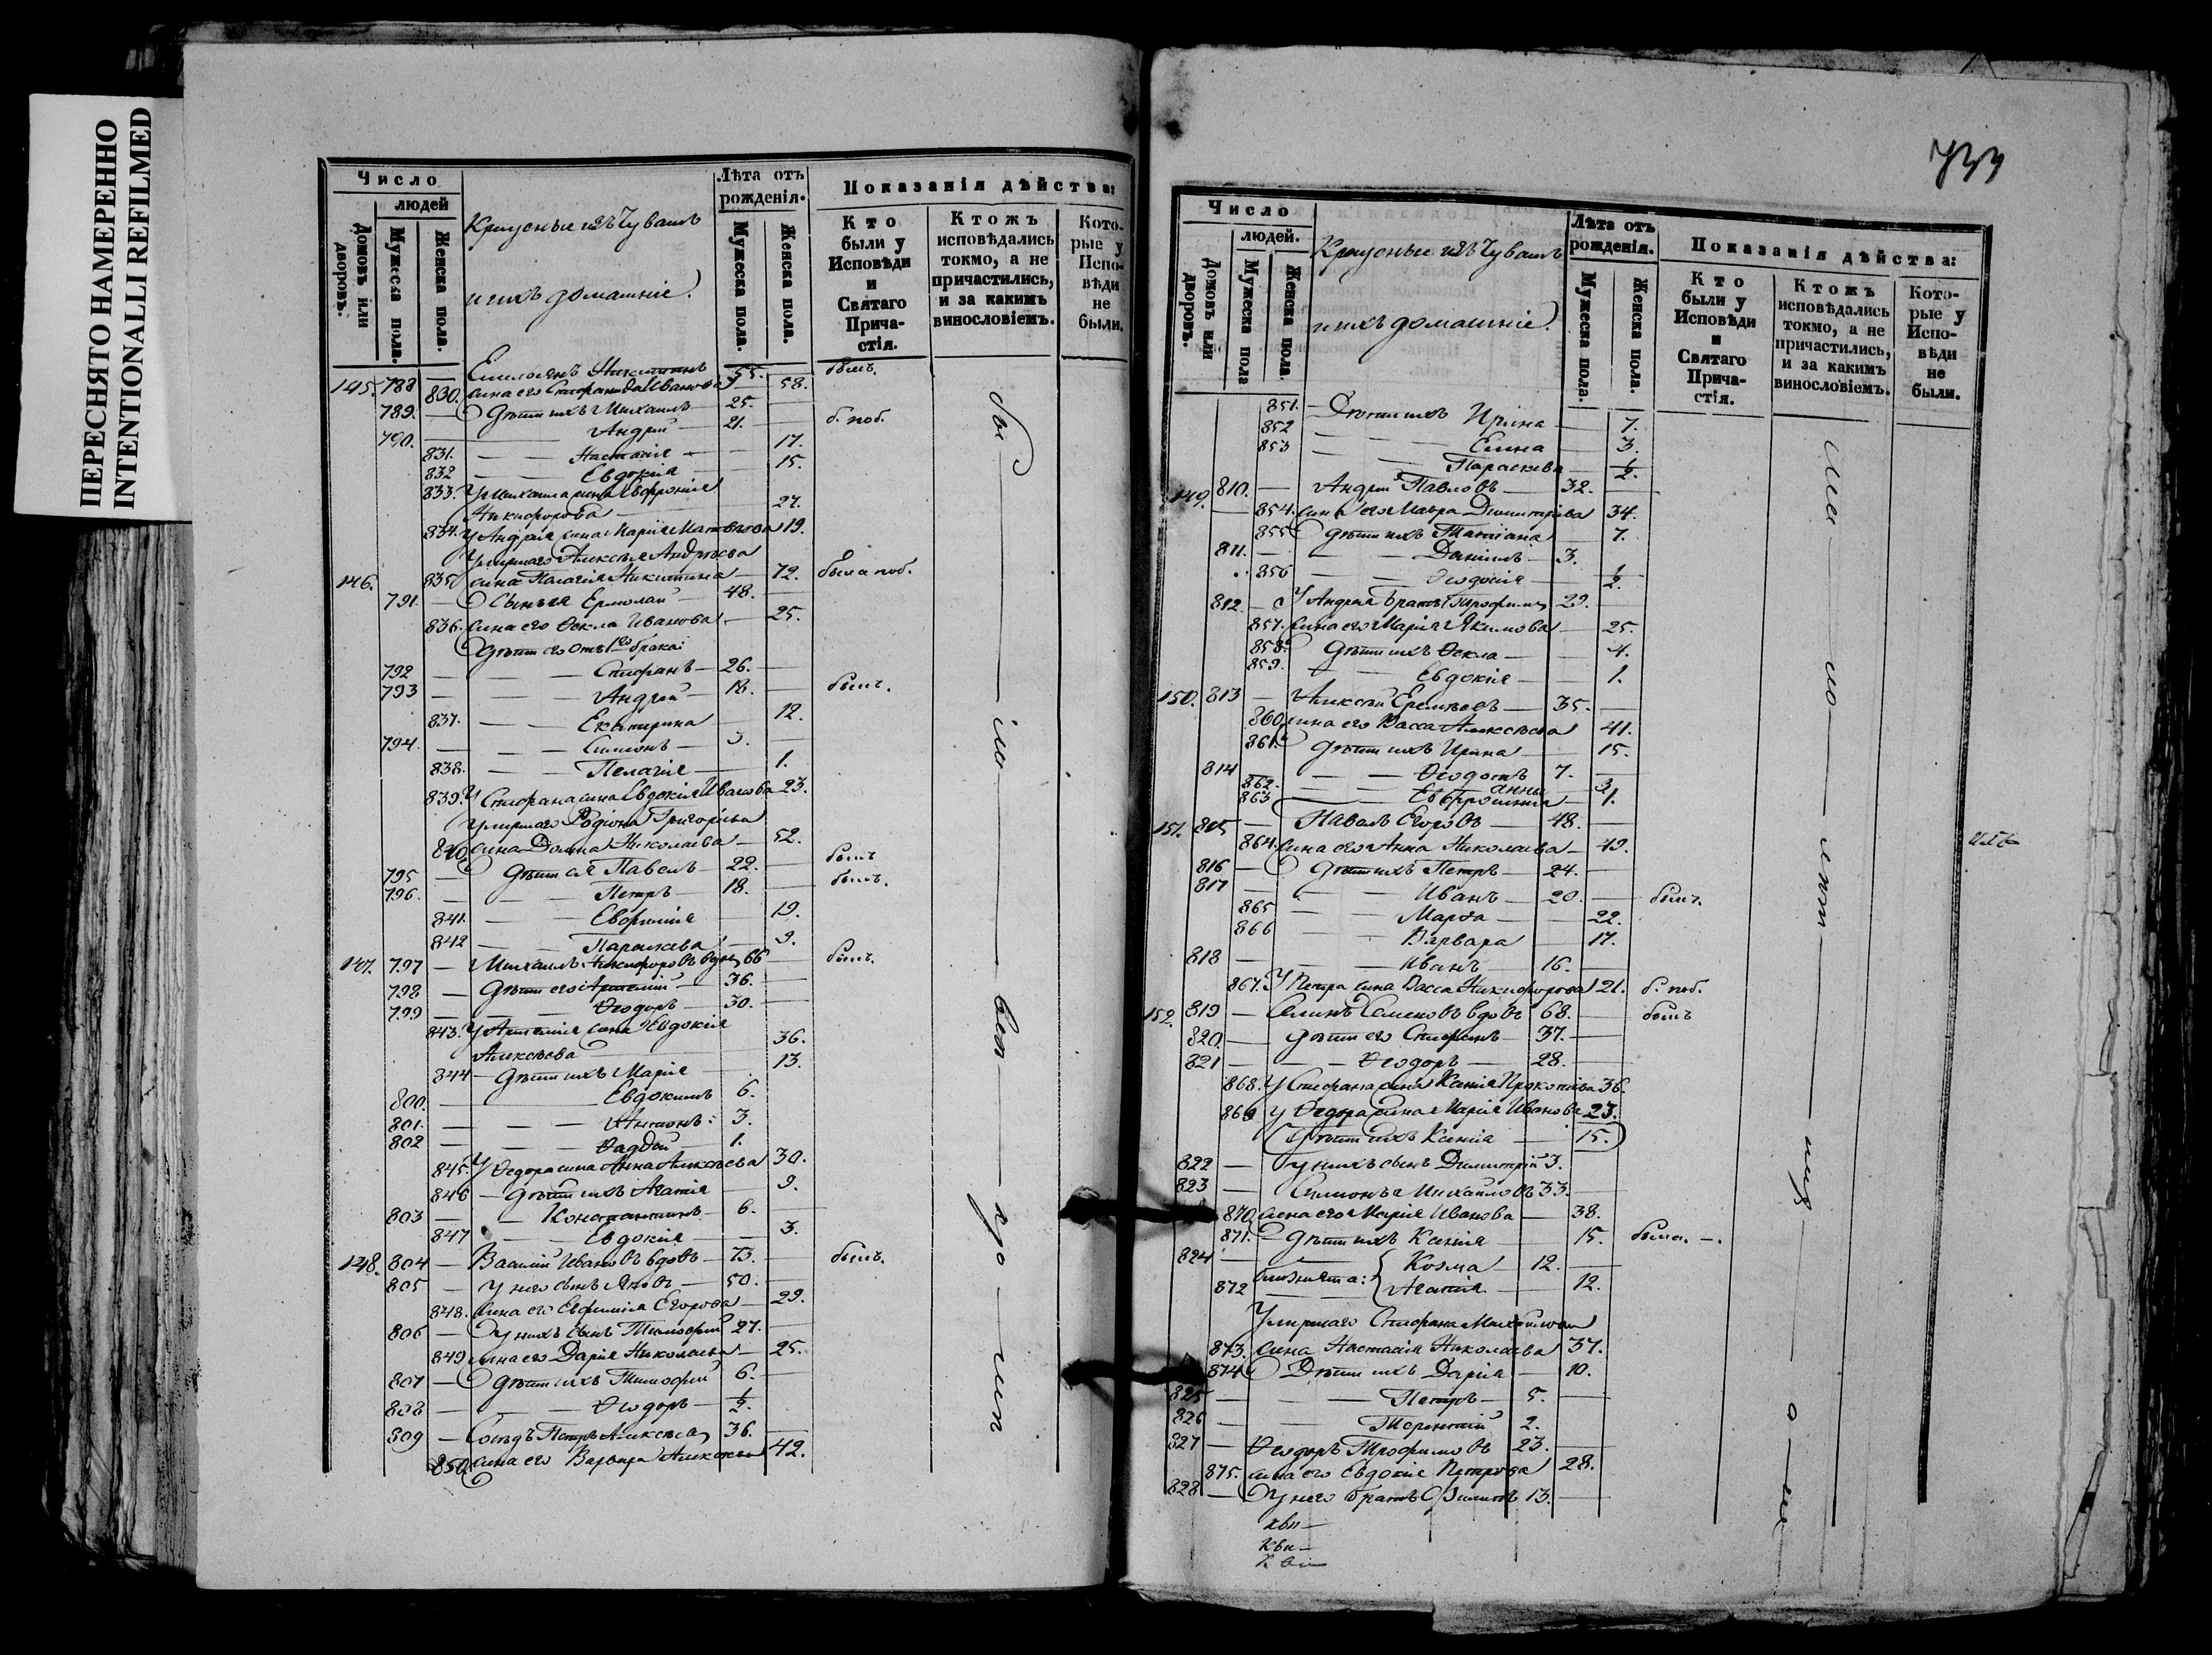 ПЕРЕСНЯТО НАМЕРЕННО
INTENTIONALLI REFILMED
Число
людей
Домовъ или дворовъ.
Мужеска пола.
Женска пола.
Крещеные изъ Чувашъ
и ихъ домашніе.
Лѣта отъ рожденія.
Мужеска пола.
Женска пола.
Показанія дѣйства:
Кто были у Исповѣди и Святаго Причастія.
Ктожъ исповѣдались токмо, а не причастились, и за какимъ винословіемъ.
Которые у Исповѣди не были.
145. 788 — Емиліанъ Никитинъ 55. былъ.
830. жена его Стефанида Иванова 58.
789. — Дѣти ихъ Михаилъ 25.
790. — Андрей 21. б. поб.
831. — — Настасія — 17.
832 — — Евдокія — 15.
833. У Михаила жена Евфросинія
Никифорова 27.
834. У Андрея жена Марія Матвѣева 19.
Умершаго Алексѣя Андреева
146. 835 жена Пелагія Никитина — 72. была поб.
791. — Сынъ ея Ермолай — 48.
836. жена его Ѳекла Иванова — 25.
Дѣти его отъ 1го брака:
792 — — Стефанъ — 26.
793 — — Андрей — 18. былъ.
837. — — Екатерина 12.
794. — — Симеонъ — 3.
838. — — Пелагія 1.
839. У Стефана жена Евдокія Иванова 23.
Умершаго Родіона Григорьева
840. жена Домна Николаева — 52.
795 — Дѣти ея Павелъ — 22. былъ
796. — — Петръ — 18. былъ.
841. — — Евфимія 19.
842 — — Параскева — 9.
147. 797 — Михаилъ Никифоровъ вдовъ 66 былъ.
798 — Дѣти его: Артемій — 36.
799 — — Ѳеодоръ — 30.
843. У Артемія жена Евдокія
Алексѣева 36.
844 — Дѣти ихъ Марія 13.
800. — Евдокимъ 6.
801. — — Антонъ: 3.
802 — — Ѳаддей — 1.
845. У Ѳедора жена Анна Алексѣева 30.
846 — Дѣти ихъ Агапія — 9.
803 — — Константинъ — 6.
847 — — Евдокія — 3.
148. 804 — Василій Ивановъ вдовъ — 73. былъ.
805 — У него сынъ Яковъ — 50.
848. жена его Евфимія Егорова — 29.
806 — У нихъ сынъ Тимофей 27.
849 жена его Дарія Николаева — 25.
807 — Дѣти ихъ Тимофей 6.
808 — — Ѳеодоръ — ½.
809 — Сосѣдъ Петръ Алексѣевъ 36.
850. жена его Варвара Алексѣева 42.
733
Число
людей.
Домовъ или дворовъ.
Мужеска пола
Женска пола.
Крещеные изъ Чувашъ
и ихъ домашніе.
Лѣта отъ рожденія.
Мужеска пола.
Женска пола.
Показанія дѣйства:
Кто были у Исповѣди и Святаго Причастія.
Ктожъ исповѣдались токмо, а не причастились, и за какимъ винословіемъ.
Которые у Исповѣди не были.
851. — Дѣти ихъ Ирина — 7.
852 — — Елена 3.
853 — — Параскева ½.
149. 810. — Андрей Павловъ — 32.
854. жена его Мавра Димитріева 34.
855 Дѣти ихъ Татіана — 7.
811. — — Даніилъ — 3.
856 — — Ѳеодосія — ½.
812 — У Андрея братъ Трофимъ 29.
857. жена его Марія Якимова — 25.
858. Дѣти ихъ Ѳекла — 4.
859. — Евдокія — 1.
150. 813 — Алексѣй Еремѣевъ — 35.
860. жена его Васса Алексѣева 41.
861. Дѣти ихъ Ирина — 15.
814 — — Ѳеодотъ 7.
862. — — Анна — 3.
863 — Евфросинія — 1.
151. 815 — Павелъ Егоровъ — 48.
864. жена его Анна Николаева — 49.
816 — Дѣти ихъ Петръ — 24.
817 — — Иванъ — 20. былъ.
865 — — Марѳа — 22.
866 — — Варвара 17.
818 — — Иванъ — 16.
867. У Петра жена Васса Никифорова 21. б. поб.
152. 819 — Семенъ Семеновъ вдовъ 68. былъ
820. — Дѣти его Стефанъ — 37.
821 — — Ѳеодоръ — 28.
868. У Стефана жена Ксенія Прокопіева 36.
869 У Ѳедора жена Марія Иванова 23.
Дѣти ихъ Ксенія 15.
822 — У нихъ сынъ Димитрій 3.
823 — Симеонъ Михайловъ 33.
870 жена его Марія Иванова — 38.
871. Дѣти ихъ Ксенія 15. была. —.
824 — Козма 12.
872 близнята: Агапія 12.
Умершаго Стефана Михайлова
873. жена Настасія Николаева 37.
874 Дѣти ихъ Дарія — 10.
825 — — Петръ — 5.
826 — — Терентій 2.
827 — Ѳеодоръ Трофимовъ 23.
875. жена его Евдокія Петрова 28.
828 — У него братъ Филипъ 13.